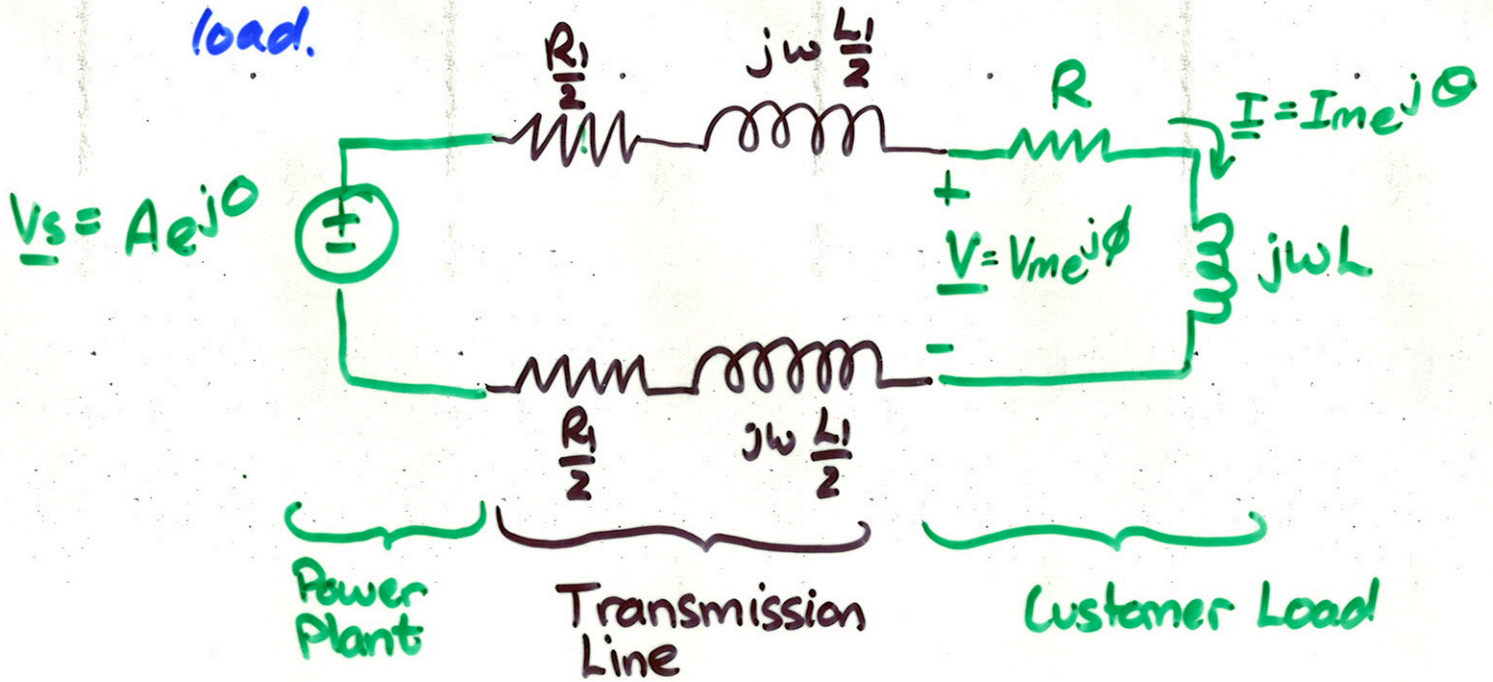 load.
R1/2
jω L1/2
R
I = Im e^jθ
Vs = A e^j0
+
-
+
V = Vm e^jϕ
-
jωL
R1/2
jω L1/2
Power
Plant
Transmission
Line
Customer Load